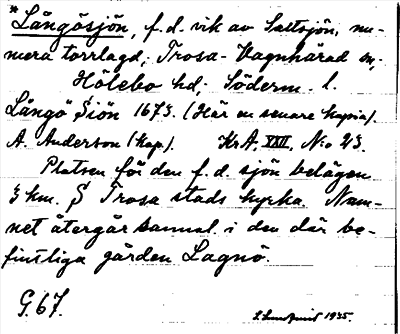 *Långösjön, f.d. vik av Saltsjön, nu-
mera torrlagd, Trosa-Vagnhärad sn,
Hölebo hd, Söderm. l.
Långö Siön 1673. (Här en senare kopia).
A. Anderson (kap.). KrA. XXII, No 23.
Platsen för den f.d. sjön belägen
3 km. S Trosa stads kyrka. Nam-
net återgår sannol. i den där be-
fintliga gården Lagnö.
G. 67. Lundquist 1935.